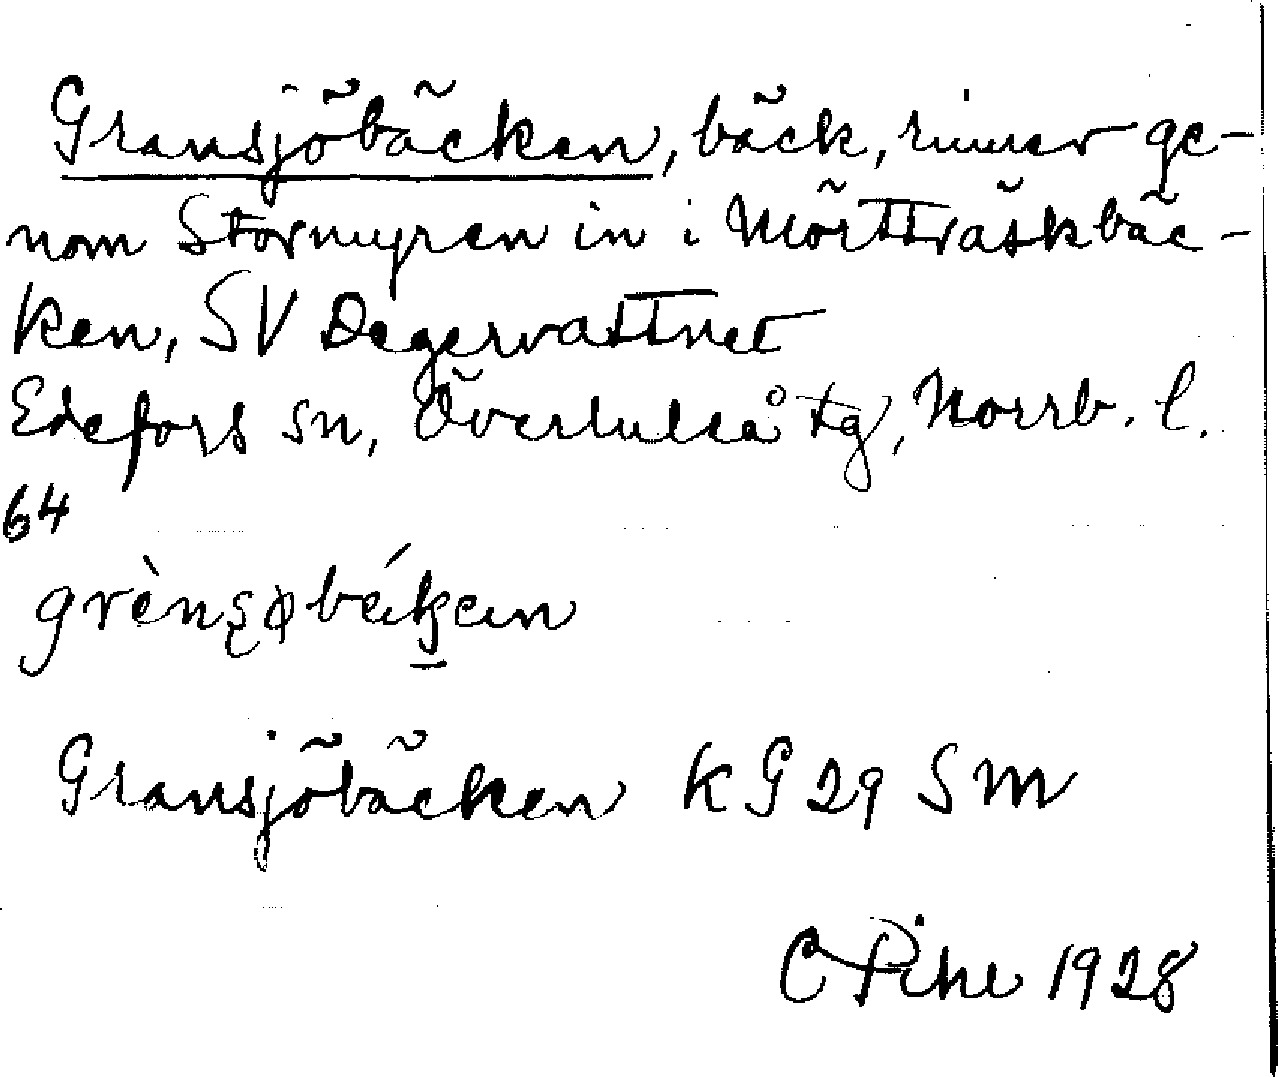 Gransjöbäcken, bäck, rinner ge-
nom Stormyren in i Mörtträskbäc-
ken, SV Degervattnet
Edefors sn, Överluleå tg, Norrb. l.
64
Gransjöbäcken KG 29 SM
C Pihl 1928